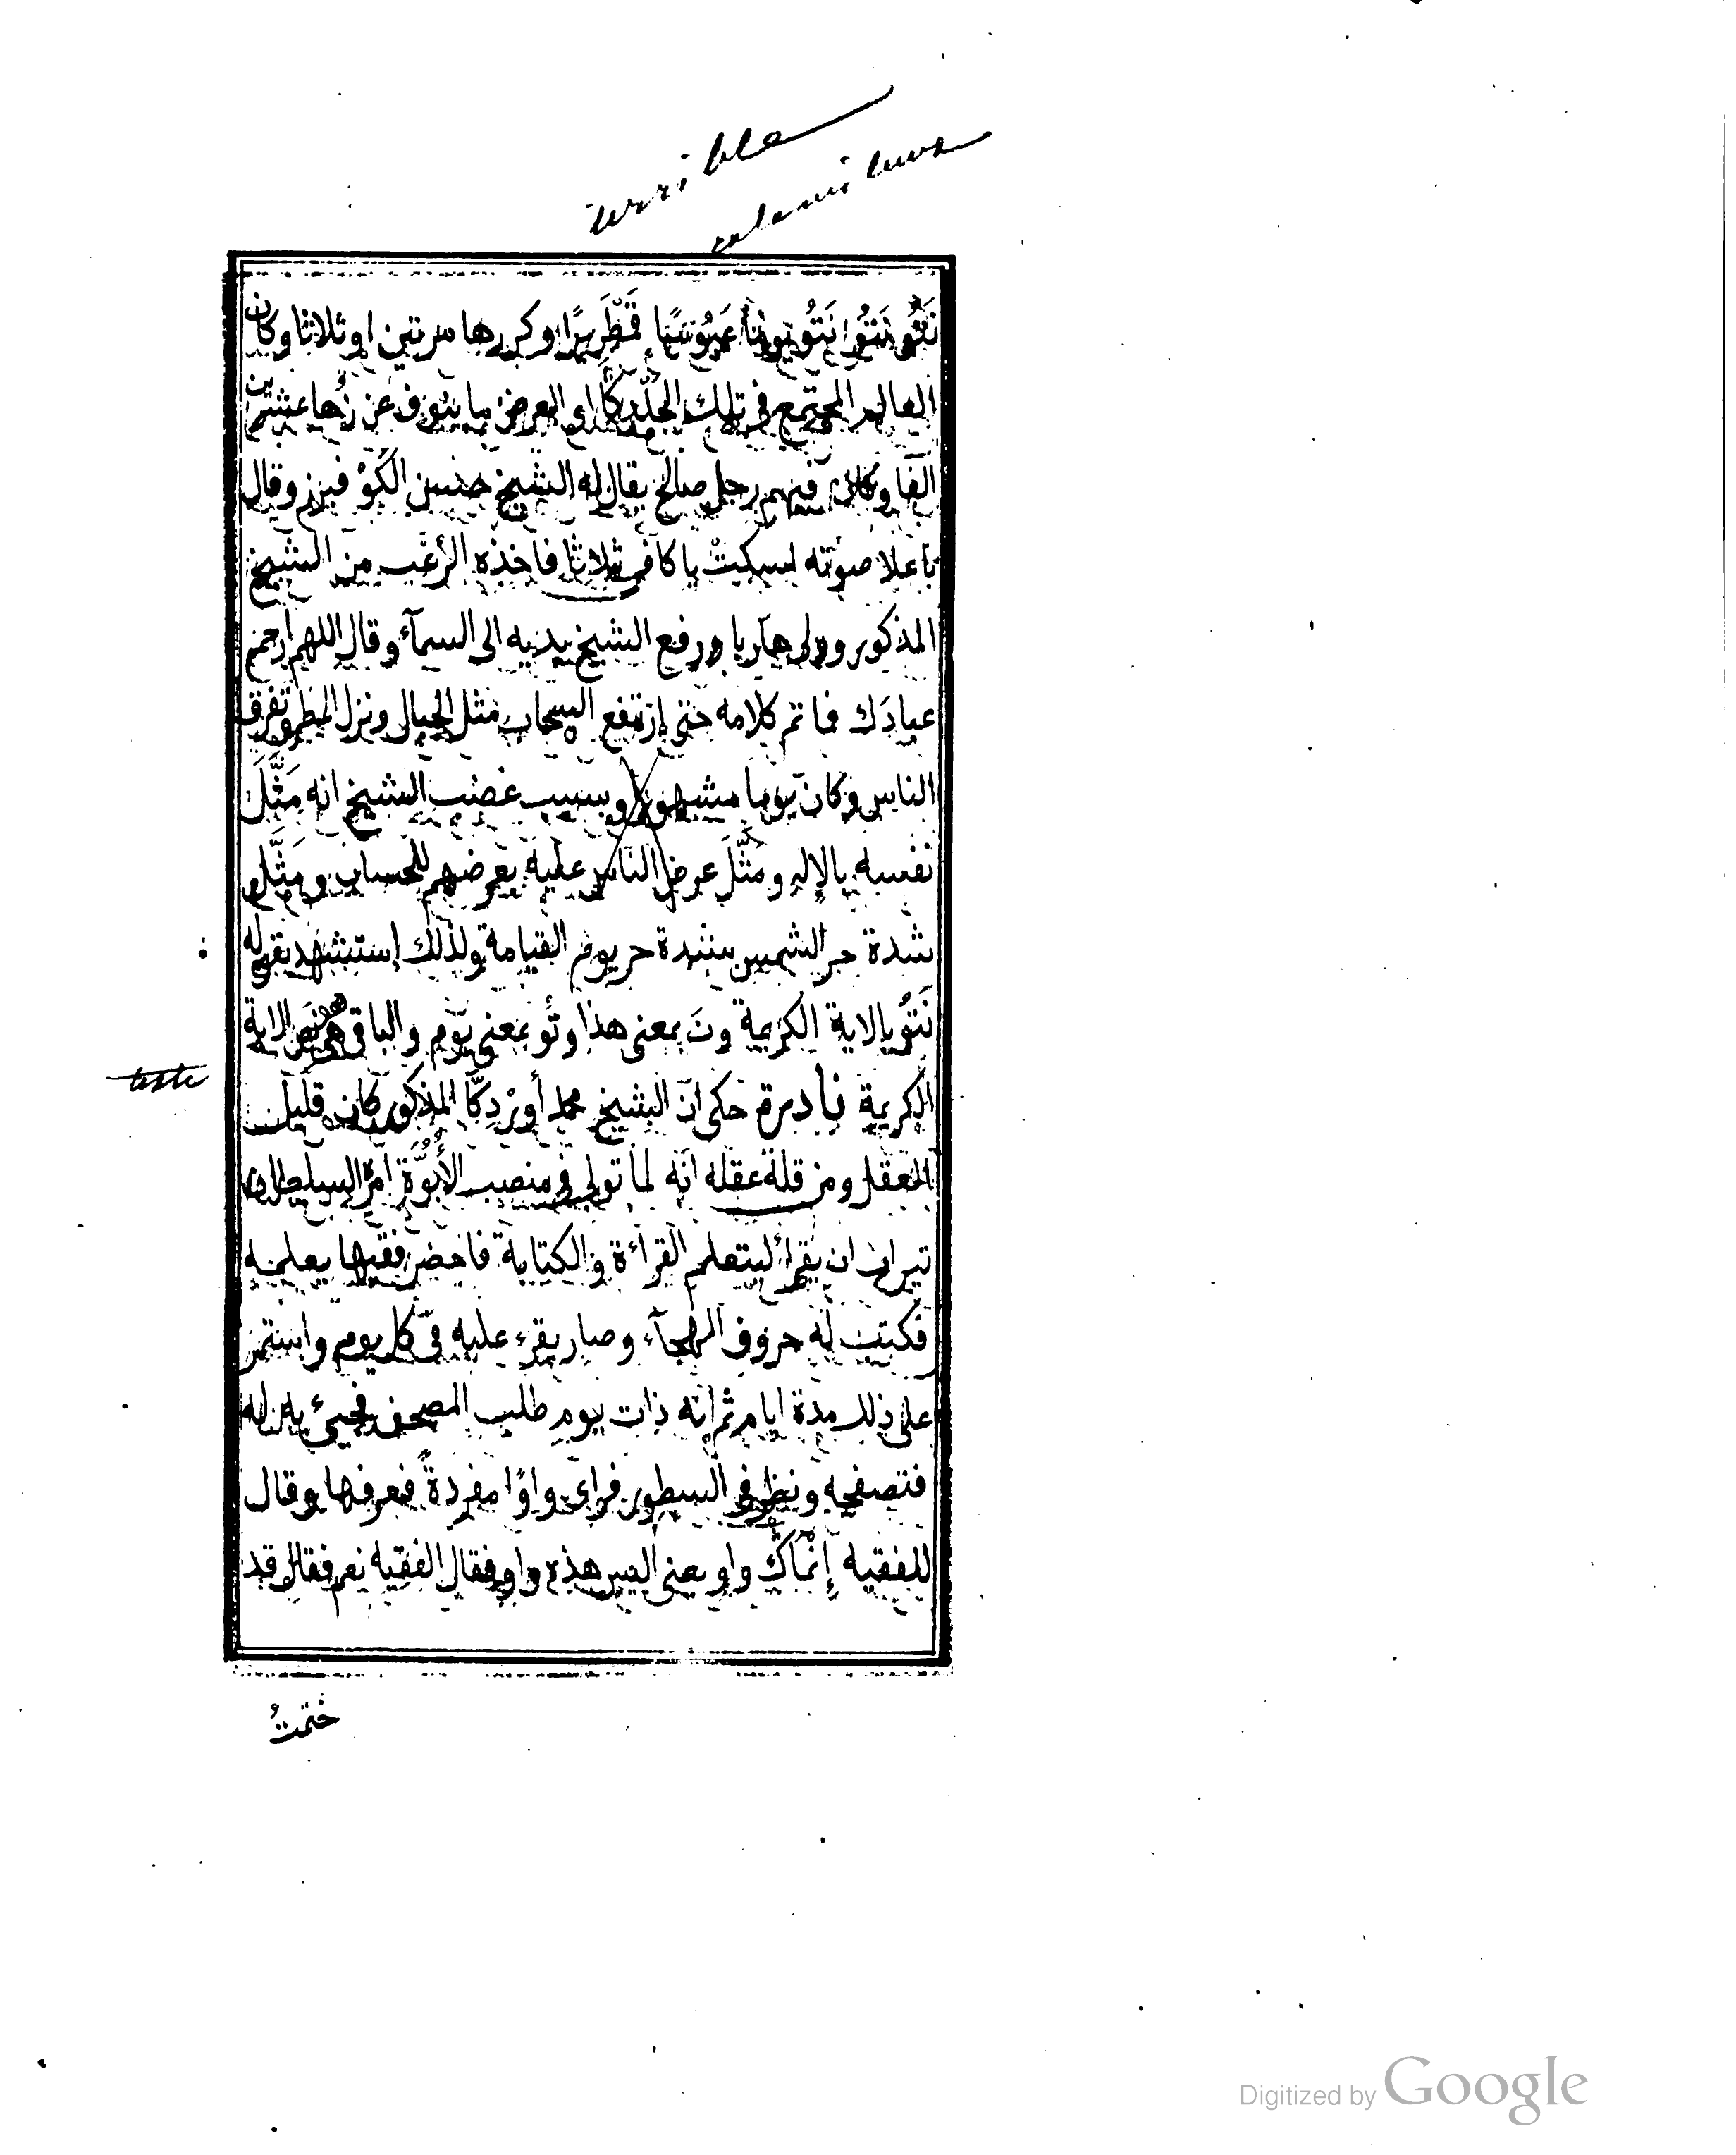 terrible
calamiteux
نَتُو نَتُو نَتُو يومًا عَبُوسًا قَمْطَرِيرًا وكررها مرتين او ثلاثا وكان
العالم المجتمع في تلك او العرض ما ينوف عن زُهاء عشرين
الفا وكان فيهم رجل صالح يقال له الشيخ حسن الكَوْ فبرز وقال
باعلا صوته اسكت يا كافر ثلاثا فاخذه الرعب من الشيخ
المذكور وولى هاربا ورفع الشيخ يديه الى السمآء وقال اللهم ارحم
عبادك فما تم كلامه حتى إرتفع السحاب مثل الجبال ونزل المطر وتفرق
الناس وكان يوما مشهودا وسبب غضب الشيخ انه مَثَّلَ
نفسه بالإله ومَثَّلَ عرض الناس عليه بعرضهم للحساب ومَثَّل
شدة حر الشمس بشدة حر يوم القيامة ولذلك إستشهد بقوله
نَتُو بالاية الكريمة ونَ بمعنى هذا وتُو بمعنى يوم والباقي هو نص الاية
teste
الكريمة نادرة حكى ان الشيخ محمد أورْدِكَّا المذكور كان قليل
العقل ومن قلة عقله انه لما تولى في منصب الأُبُوَّة امره السلطان
تيراب ان يقرأ ليتعلم القرأة والكتابة فاحضر فقيها يعلمه
فكتب له حروف الهجآء وصار يقرء عليه في كل يوم واستمر
على ذلك مدة ايام ثم انه ذات يوم طلب المصحف فجيئ به له
فتصفحه ونظر في السطور فراى واوًا مفردةً فعرفها وقال
للفقيه واو يعني اليس هذه واو فقال الفقيه نعم فقال قد
ختمتُ
Digitized by Google